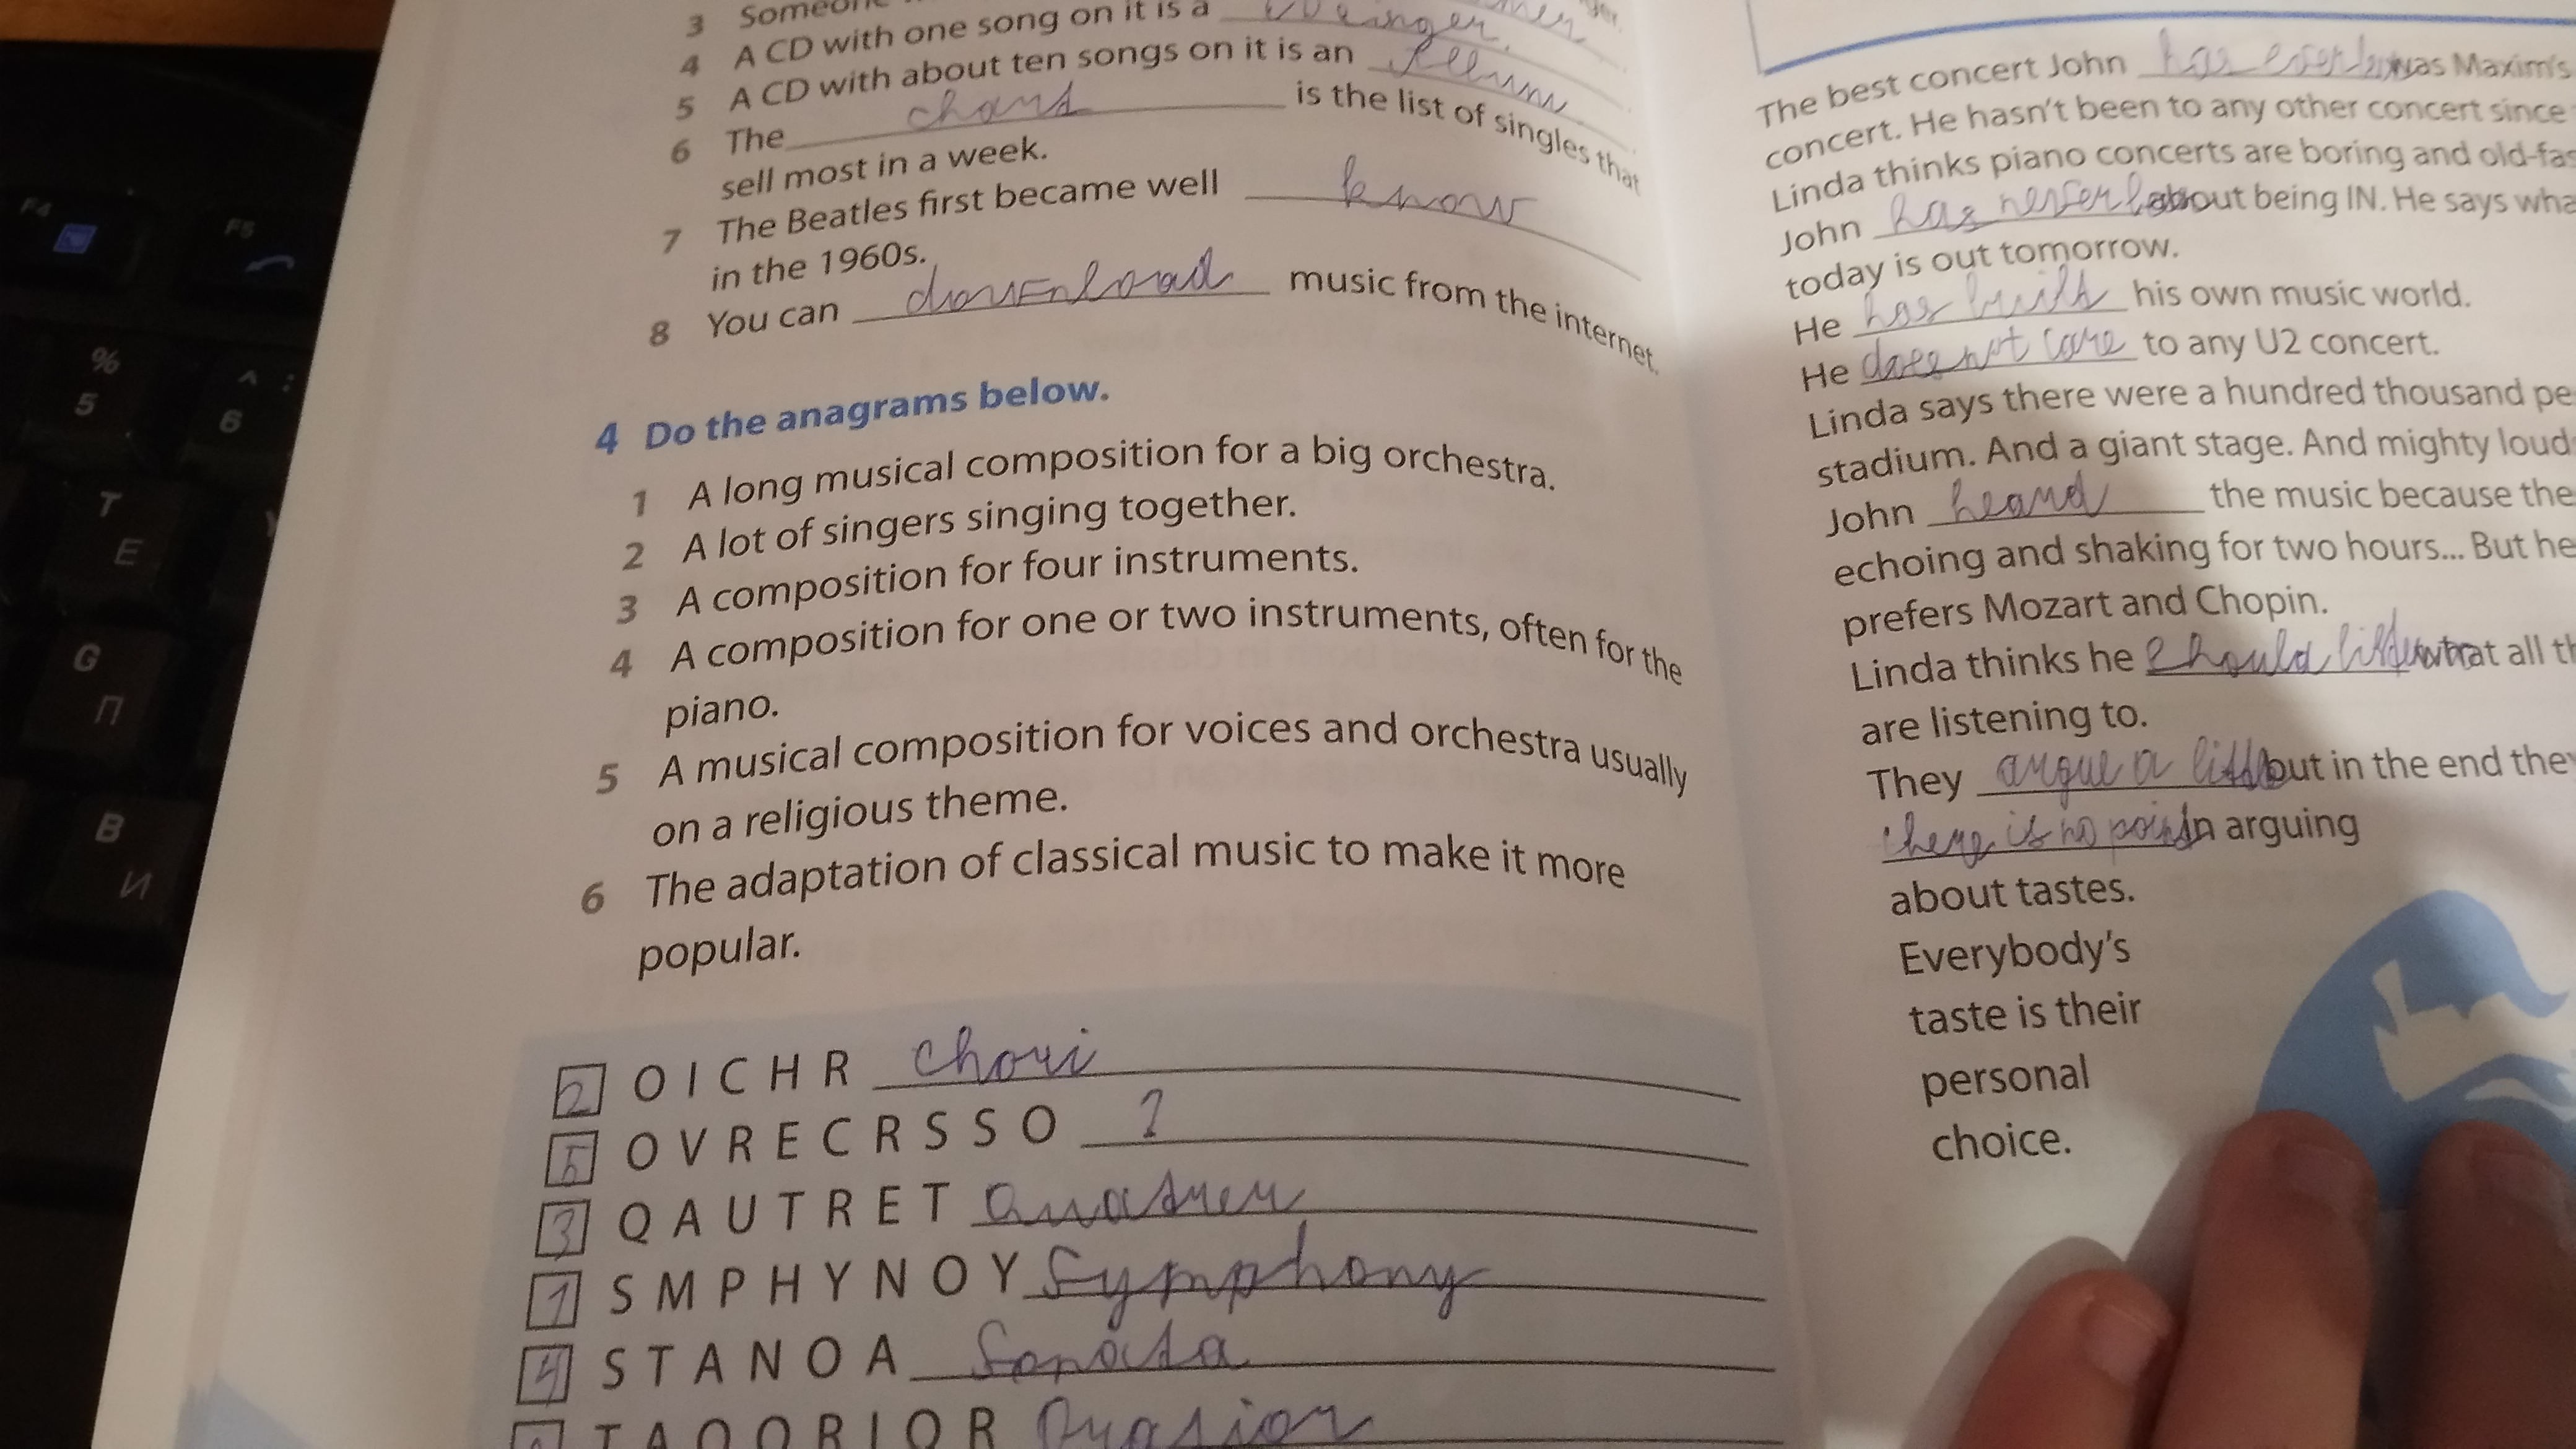 3 Someone
4 A CD with one song on it is a
5 A CD with about ten songs on it is an
6 The chart is the list of singles that
sell most in a week.
7 The Beatles first became well know
in the 1960s.
8 You can download music from the internet.
4 Do the anagrams below.
1 A long musical composition for a big orchestra.
2 A lot of singers singing together.
3 A composition for four instruments.
4 A composition for one or two instruments, often for the
piano.
5 A musical composition for voices and orchestra usually
on a religious theme.
6 The adaptation of classical music to make it more
popular.
2 OICHR Chori
5 OVRECRSSO ?
3 QAUTRET
1 SMPHYNOY Symphony
4 STANOA Sonata
TAOORIOR
The best concert John has ever was Maxim's
concert. He hasn't been to any other concert since
Linda thinks piano concerts are boring and old-fas
John has never about being IN. He says wha
today is out tomorrow.
He has built his own music world.
He does not care to any U2 concert.
Linda says there were a hundred thousand pe
stadium. And a giant stage. And mighty loud
John heard the music because the
echoing and shaking for two hours... But he
prefers Mozart and Chopin.
Linda thinks he should what all th
are listening to.
They argue a little but in the end they
there is no point in arguing
about tastes.
Everybody's
taste is their
personal
choice.
F4
F5
% 5
^ : 6
T E
G П
B И